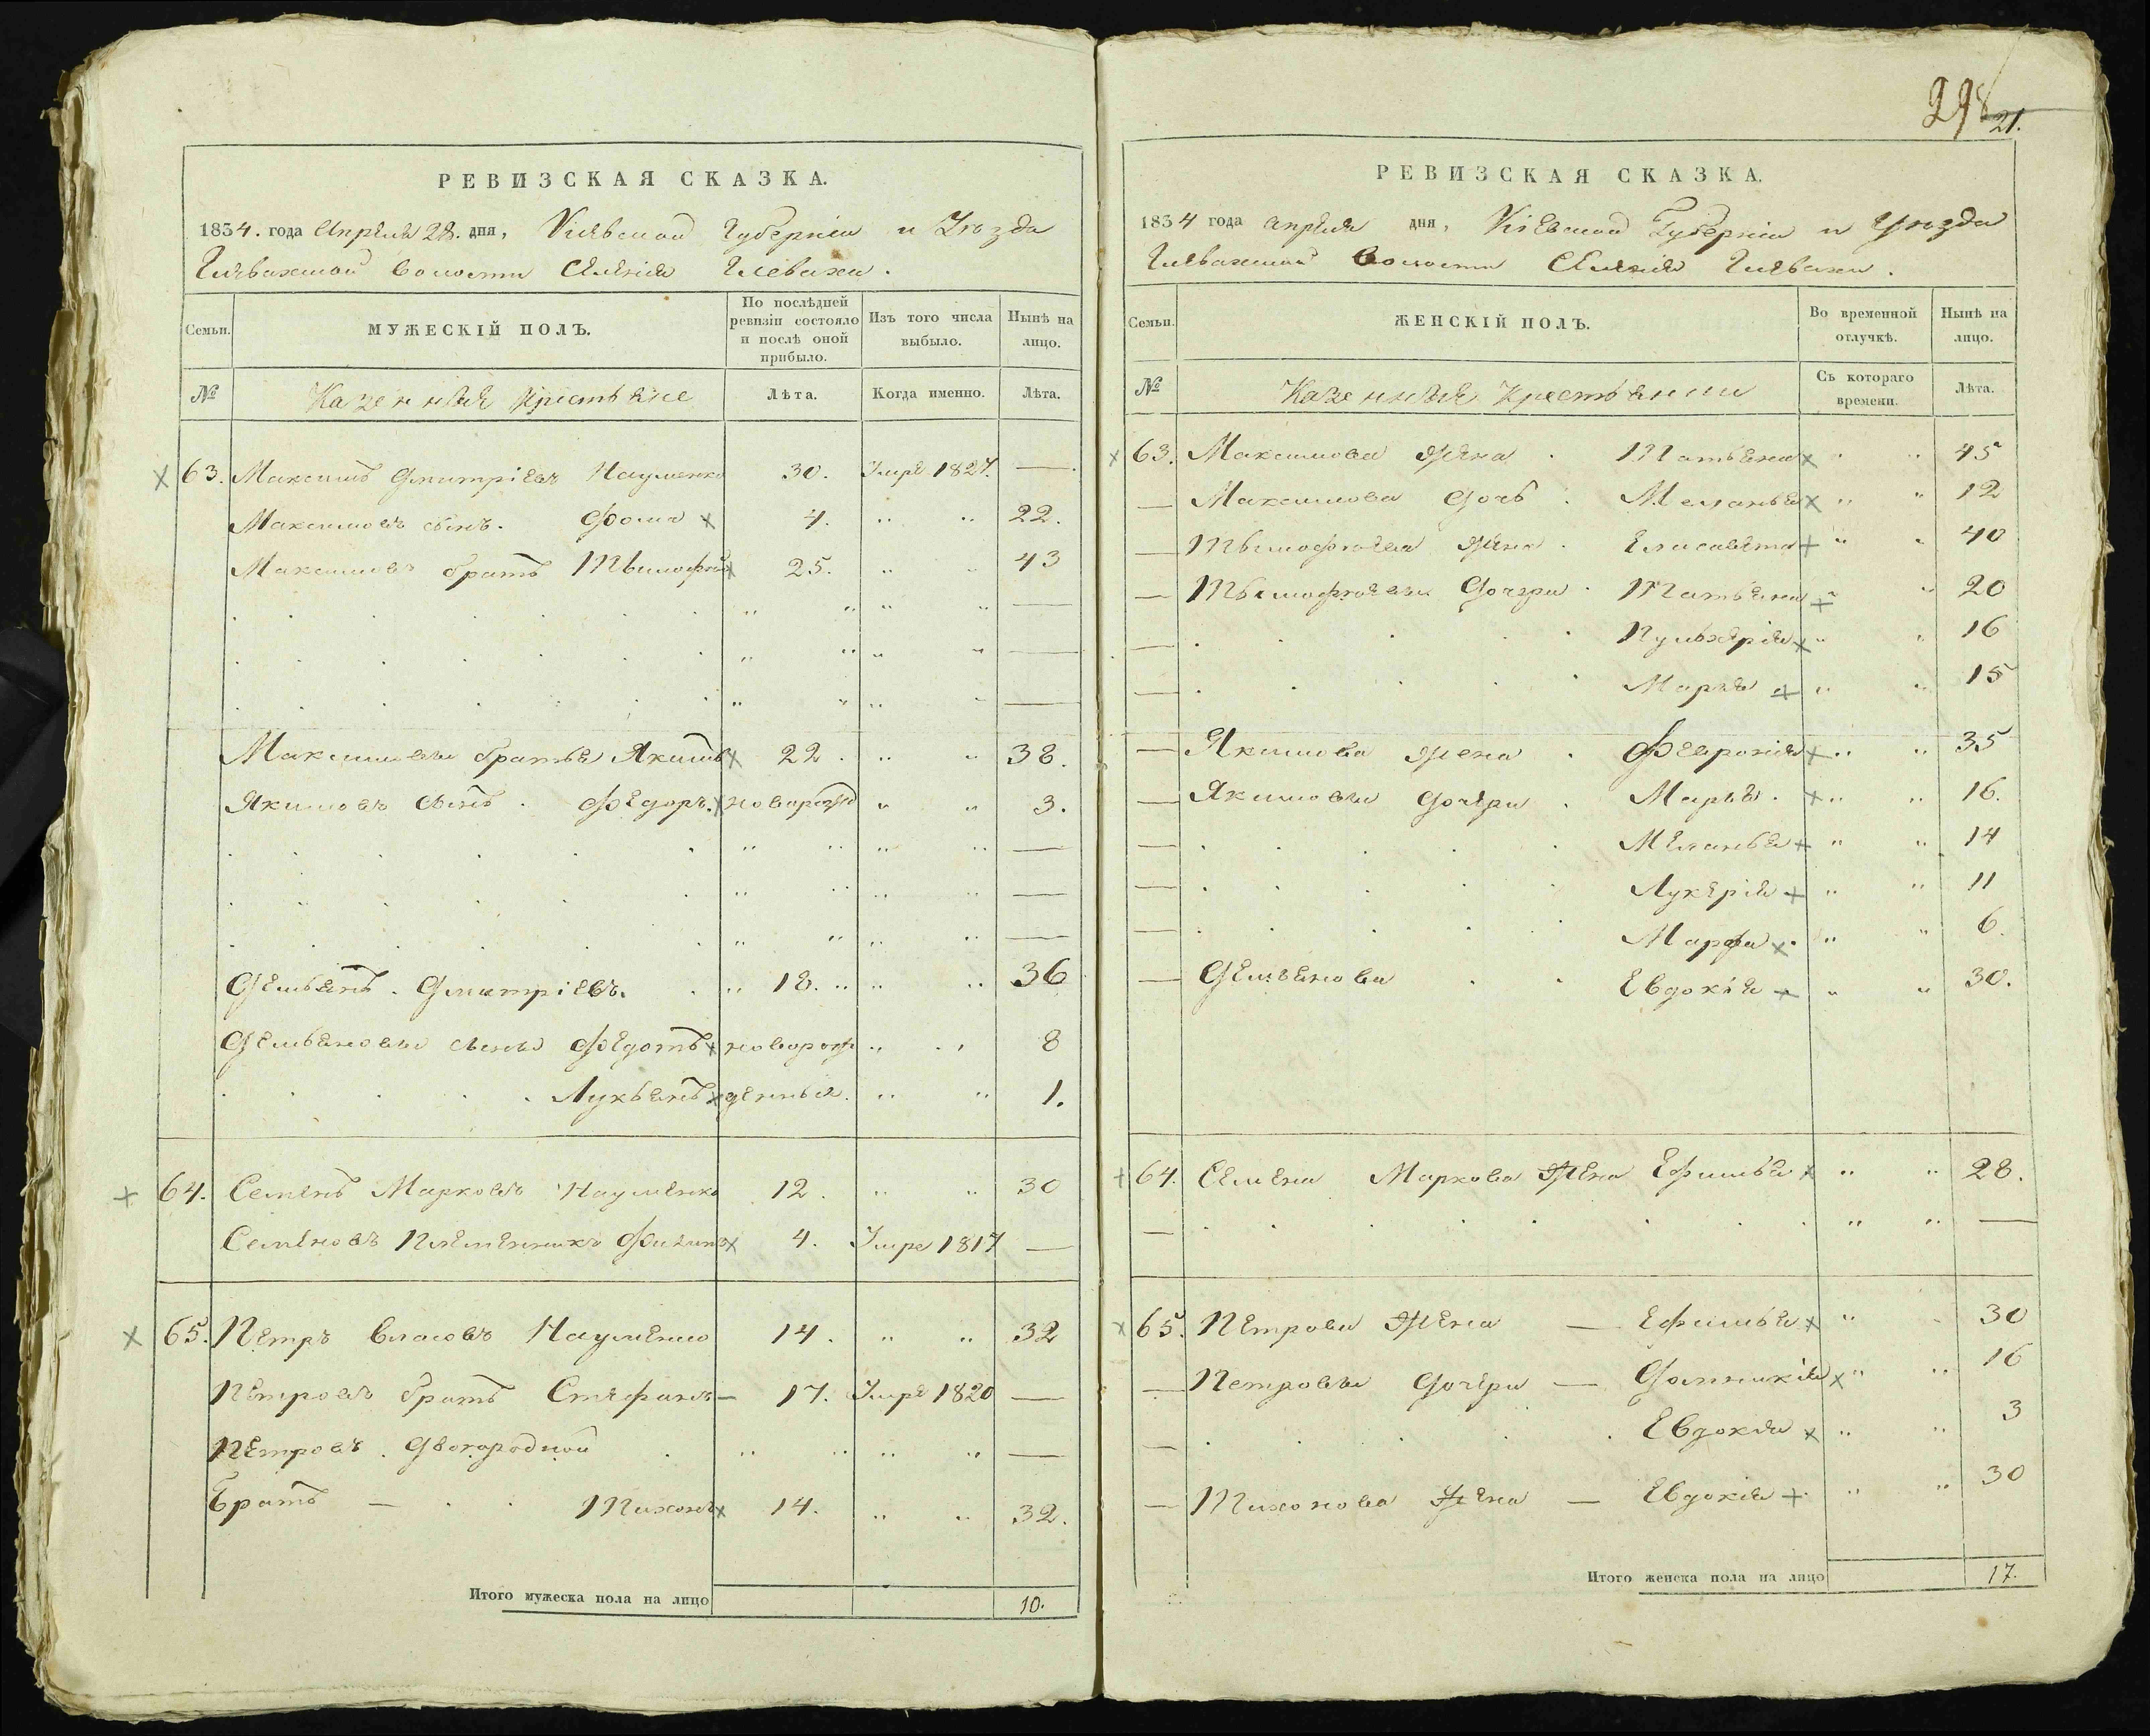 298
21.
РЕВИЗСКАЯ СКАЗКА.
1834. года Апреля 28. дня, Киевской Губернии и Уѣзда
Глевахской волости Селенія Глевахи.
Семьи.
МУЖЕСКІЙ ПОЛЪ.
По послѣдней
ревизіи состояло
и послѣ оной
прибыло.
Изъ того числа
выбыло.
Нынѣ на
лицо.
№
Казенные Крестьяне
Лѣта.
Когда именно.
Лѣта.
63. Максимъ Дмитріевъ Науменко 30. Умре 1827. —
Максимовъ сынъ. Фома 4. 22.
Максимовъ братъ Тымофей 25. 43
Максимовъ братья Якимъ 22. 38.
Якимовъ сынъ. Федоръ. новорож 3.
Демьянъ. Дмитріевъ. 18. 36
Демьяновы сыны Федотъ новорож 8
Лукьянъ денныя. 1.
64. Семенъ Марковъ Науменко 12. 30
Семеновъ Племянникъ Филипъ 4. Умре 1817 —
65. Петръ Власовъ Науменко 14. 32
Петровъ братъ Стефанъ — 17. Умре 1820 —
Петровъ. Двоюродной —
Братъ — Тихонъ 14. 32.
Итого мужеска пола на лицо 10.
РЕВИЗСКАЯ СКАЗКА.
1834 года апреля дня, Кіевской Губерніи и Уѣзда
Глевахской Волости Селенія Глевахи.
Семьи.
ЖЕНСКІЙ ПОЛЪ.
Во временной
отлучкѣ.
Нынѣ на
лицо.
№
Казенные Крестьянки
Съ котораго
времени.
Лѣта.
63. Максимова жена Татьяна 45
— Максимова дочь Меланья 12
— Тымофеева жена Елисавета 40
— Тымофеевы дочери Татьяна 20
— Пульхерія 16
— Марья 15
— Якимова жена Феврония 35
— Якимовы дочери Марья 16.
— Меланья 14
— Лукерія 11
— Марфа 6.
— Демьянова Евдокія 30.
64. Семена Маркова жена Ефимья 28.
65. Петрова жена — Ефимья 30
— Петровы дочери — Домникія 16
— Евдокія 3
— Тихонова жена — Евдокія 30
Итого женска пола на лицо 17.